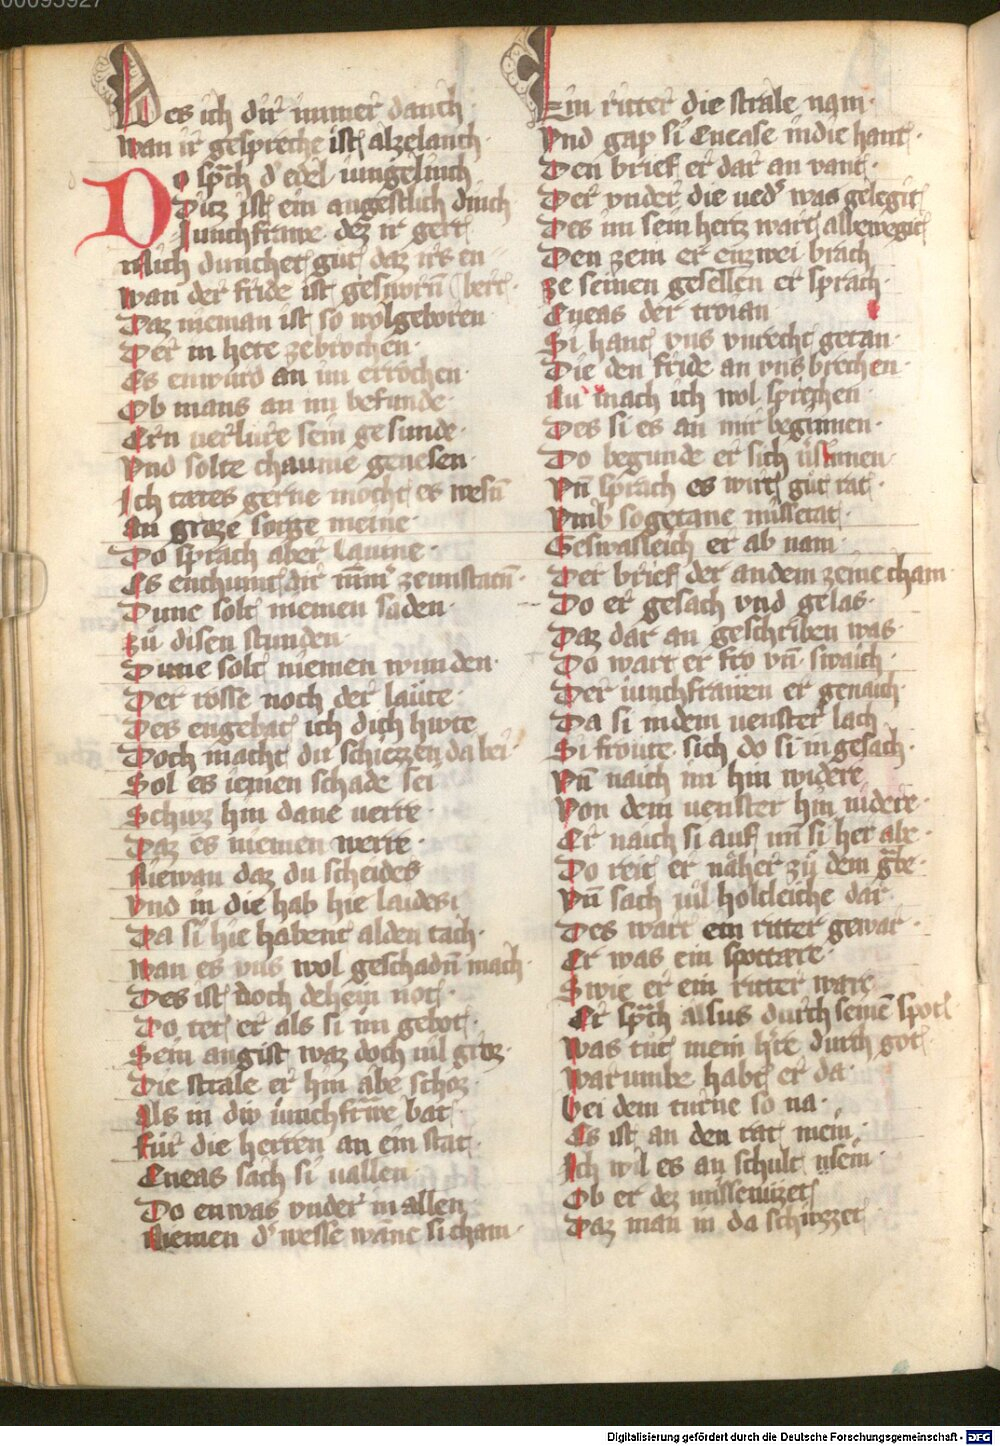 00095927
Des ich dir immer danch
Wan ir gespreche ist alzelanch
Do sp̃ch d' edel iungelinch
Ditz ist ein angestlich dinch
Iunchfrawe dez ir gert
Mich dunchet gut daz irs en
wan der fride ist gesworñ bert
Daz nieman ist so wolgeboren
Der in hete zebrochen
Es enwurd an im errochen
Ob mans an im befunde
Ern verlure sein gesunde
Vnd solte chaume genesen
Ich tætes gerne mocht es wesñ
An groze sorge meine
Do sprach aber lauine
Es enchumt dir nim̄' ze unstatñ
Dune solt niemen saden
zu disen stunden
Dune solt niemen wunden
Der rosse noch der laüte
Des engebat ich dich hiwte
Doch macht du schiezzen da bei
Sol es iemen schade sei
Schiuz hin dane uerre
Daz es niemen werre
Niewan daz du scheides
Vnd in die hab hie laides
Da si hie habent alden tach
wan es uns wol geschadñ mach
Des ist doch dehein not
Do tet er als si im gebot
Sein angist waz doch uil groz
Die strale er hin abe schoz
Als in diu iunchfrawe bat
Für die herren an ein stat
Eneas sach si uallen
Do enwas under in allen
Niemen d' wesse wanne si cham
Ein ritter die strale nam
Vnd gap si Enease in die hant
Den brief er dar an vant
Der under die ued' was gelegit
Des im sein hertz wart allerwegit
Den zein er enzwei brach
ze seinen gesellen er sprach
Eneas der troian
Si hant uns unrecht getan
Die den fride an uns brechen
Nu mach ich wol sprechen
Des si es an mir beginnen
Do begunde er sich uersinnen
Vñ sprach es wirt gut rat
Vmb sogetane missetat
Geswasleich er ab nam
Der brief der an dem zeine cham
Do er gesach vnd gelas
Daz dar an geschriben was
Do wart er fro vñ swaich
Der iunchfrauen er genaich
Da si in dem uenster lach
Si froute sich do si in gesach
Vñ naich im hin widere
Von dem uenster hin nidere
Er naich si auf vñ si her abe
Do reit er näher zu dem g̃be
Vñ sach uil holtleiche dar
Des wart ein ritter gewar
Er was ein spottære
Swie er ein ritter wære
Er sp̃ch alsus durch seinē spot
Was tut mein h're durch got
Warumbe habt er da
bei dem turne so na
Es ist an den rat mein
Ich wil es an schult sein
Ob er dez missewizet
Daz man in da schiuzzet
Digitalisierung gefördert durch die Deutsche Forschungsgemeinschaft - DFG